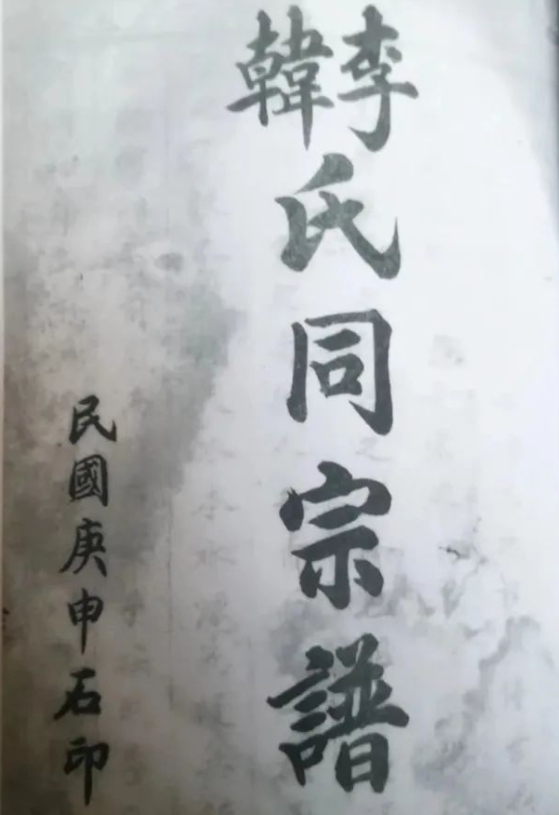 李韓
氏同宗譜
民國庚申石印